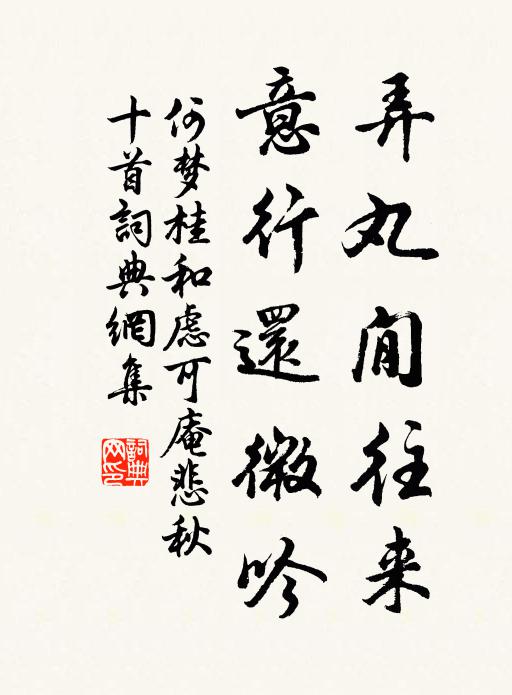 弄丸閒往来
意行還微吟
何梦桂和虑可庵悲秋
十首詞典網集
詞典
网印